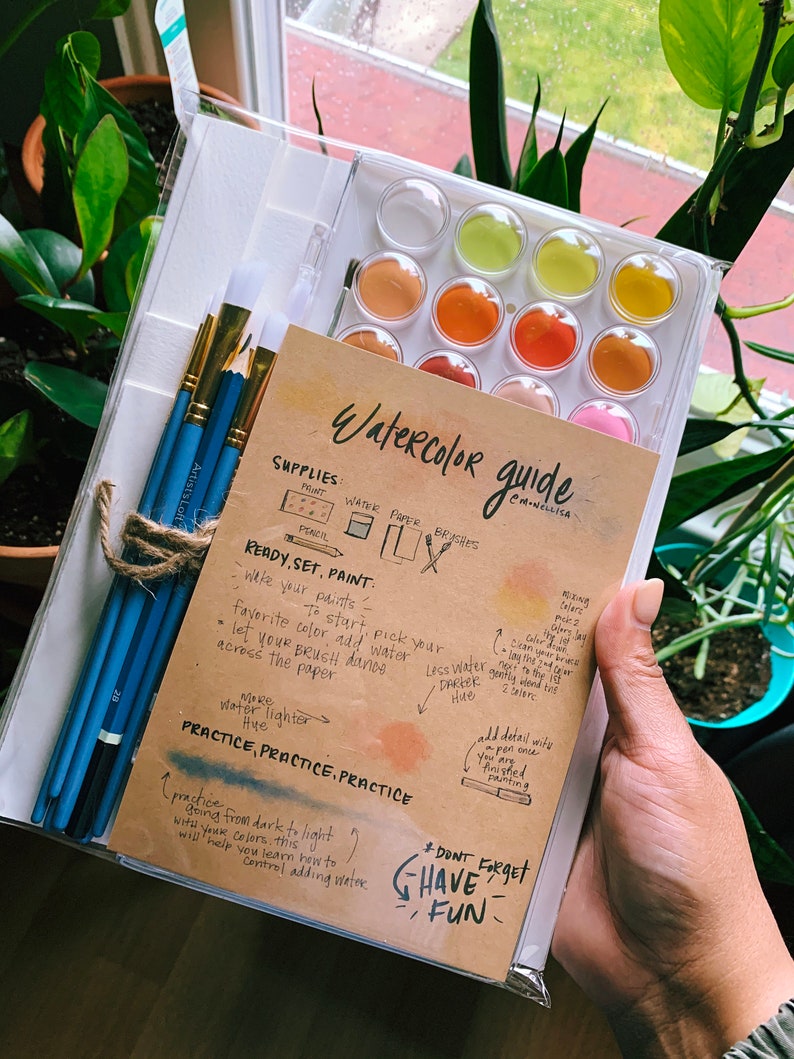 Watercolor guide
@MONELLISA
SUPPLIES:
PAINT
WATER
PAPER
BRUSHES
PENCIL
READY, SET, PAINT.
wake your paints
to start, pick your
favorite color add water
* let your BRUSH dance
across the paper
MIXING
COLORS
pick 2
colors lay
the 1st
color down,
clean your brush
lay the 2nd color
next to the 1st
gently blend the
2 colors.
Less water
DARKER
Hue
MORE
water lighter
Hue
PRACTICE, PRACTICE, PRACTICE
add detail with
a pen once
you are
finished
painting
practice
going from dark to light
with your colors. this
will help you learn how to
control adding water
*DONT FORGET
HAVE
FUN
Artist's Loft
2B